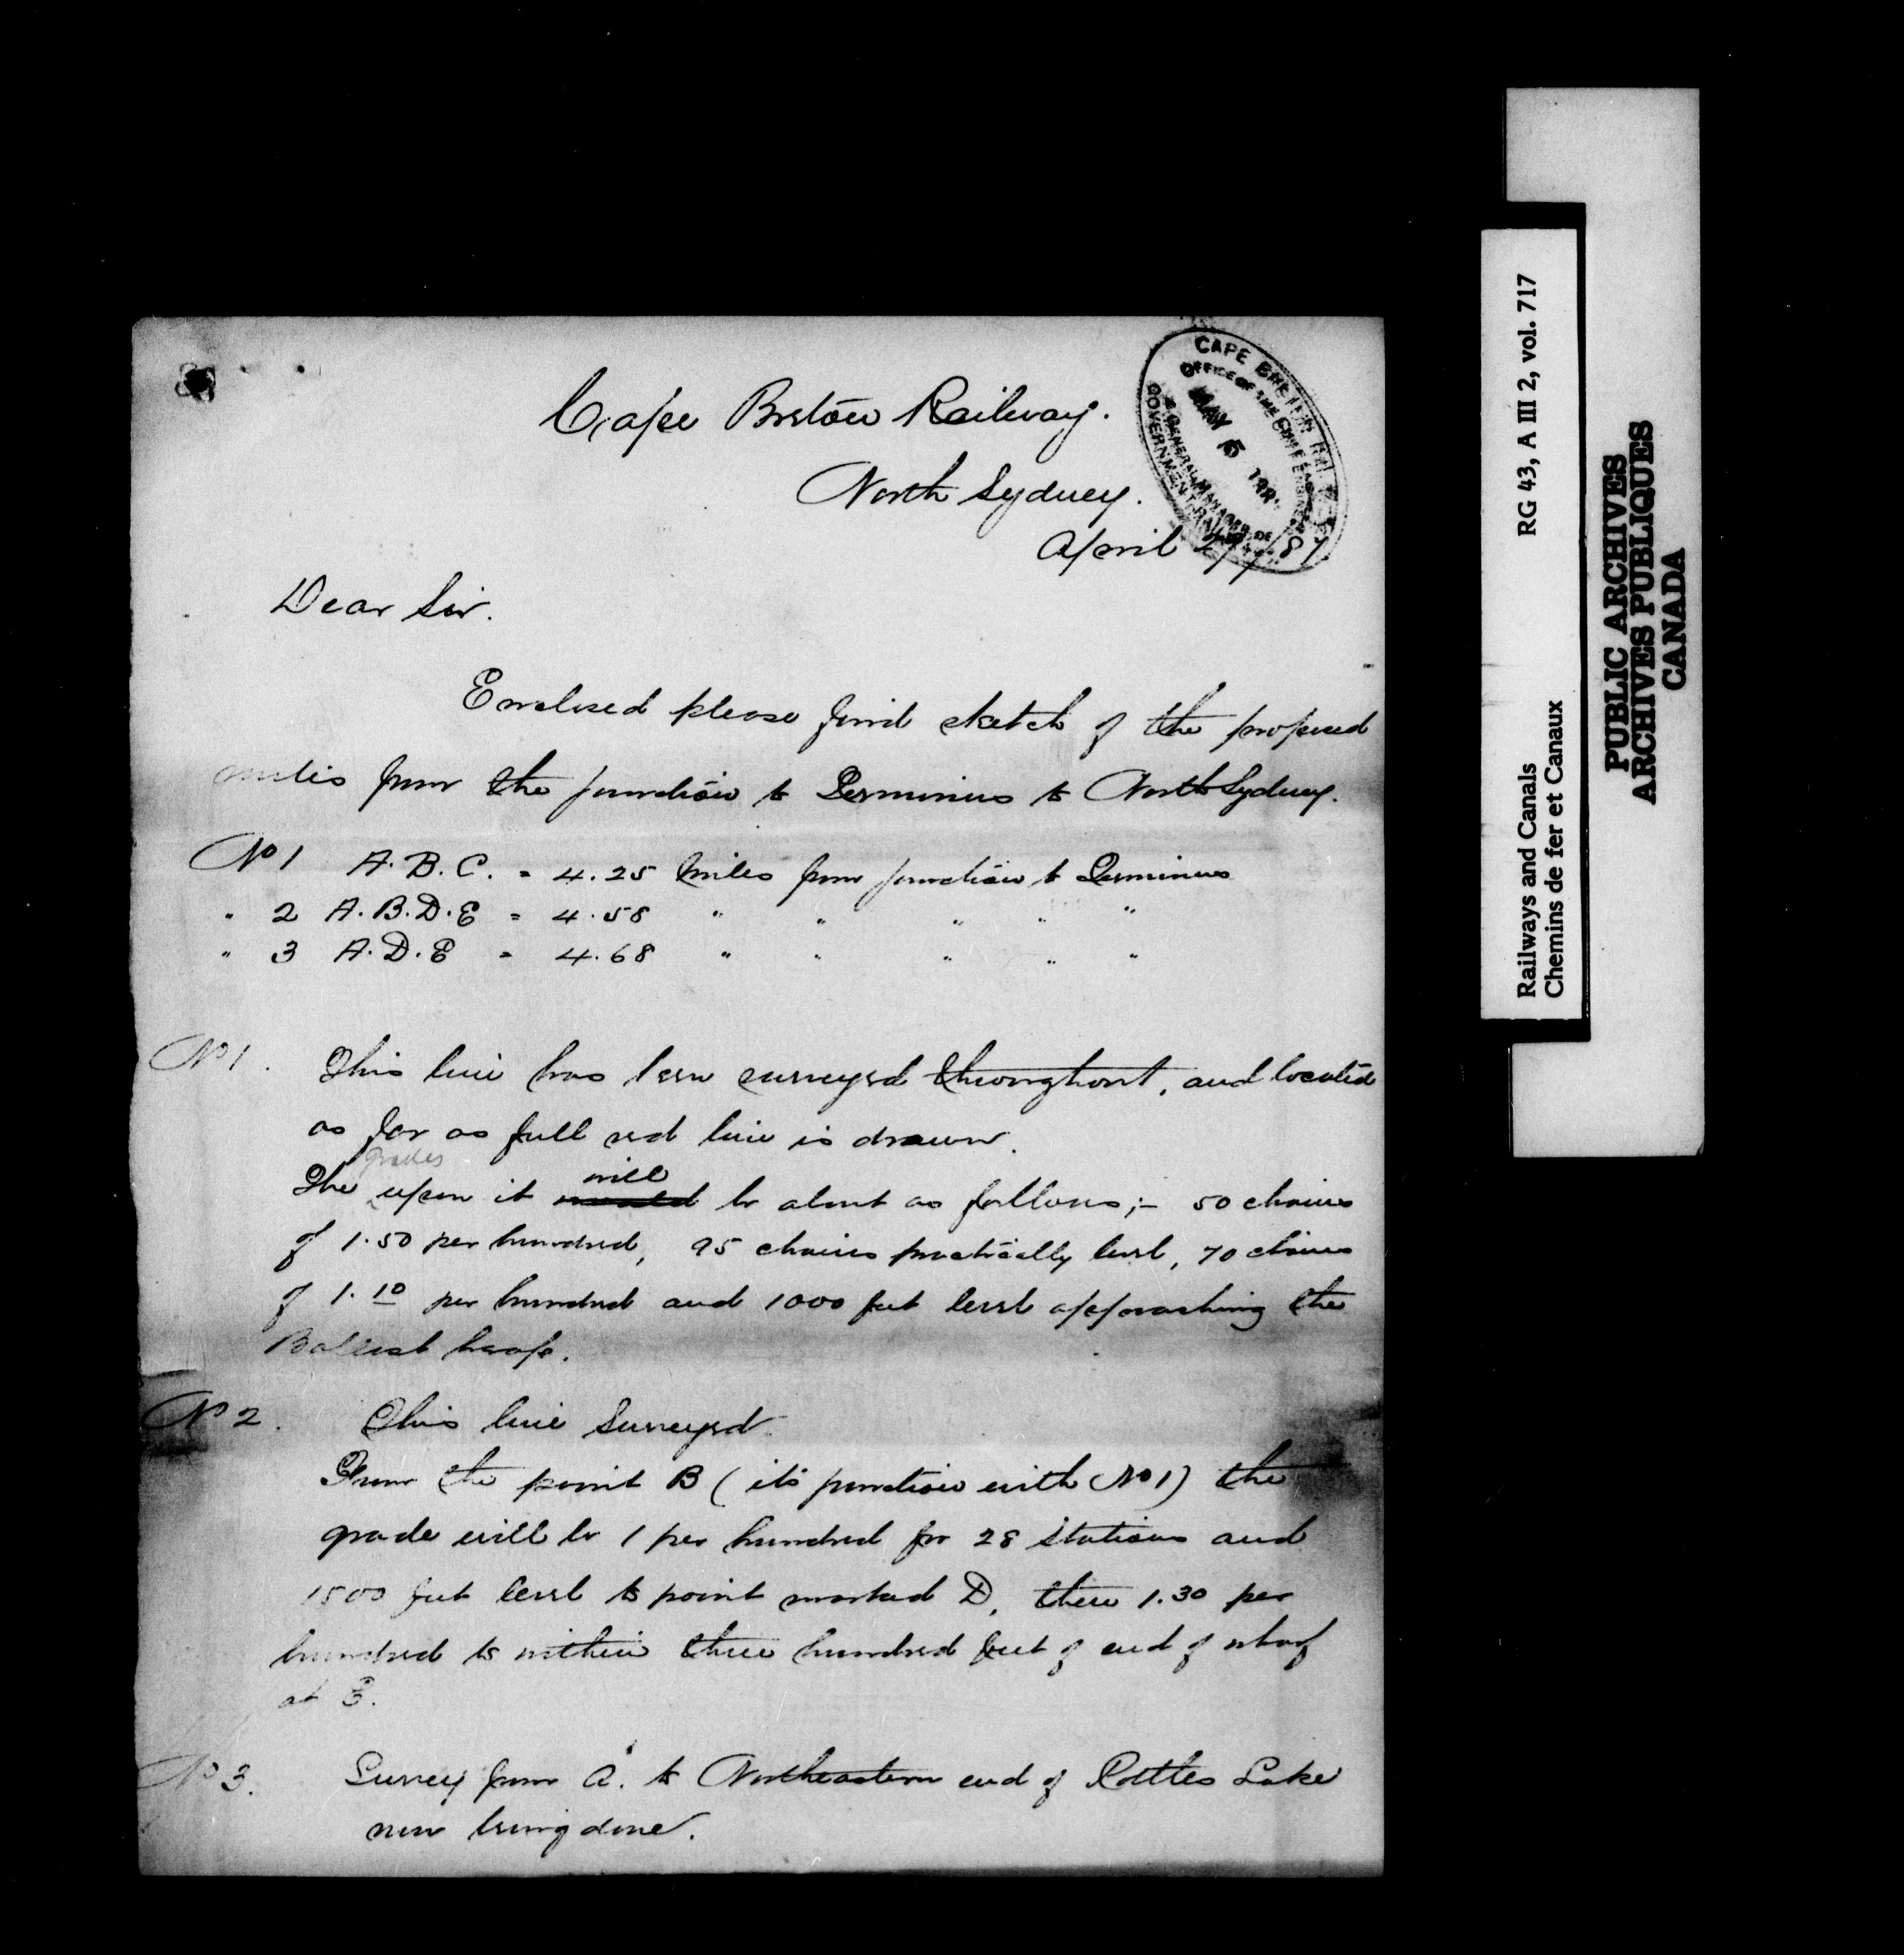 Cape Breton Railway.
North Sydney.
April 27/87
CAPE BRETON RAILWAY
OFFICE OF THE CHIEF ENGINEER
& GENERAL MANAGER OF
GOVERNMENT RAILWAYS
MAY 5 188
Dear Sir.
Enclosed please find sketch of the proposed
routes from the junction to Terminus to North Sydney.
No 1 A.B.C. = 4.25 Miles from junction to Terminus
" 2 A.B.D.E = 4.58 " " " " "
" 3 A.D.E = 4.68 " " " " "
No 1. This line has been surveyed throughout, and located
as far as full red line is drawn.
The grades upon it would will be about as follows;- 50 chains
of 1.50 per hundred, 95 chains practically level, 70 chains
of 1.10 per hundred and 1000 feet level approaching the
Ballast heap.
No 2. This line Surveyed.
From the point B (its junction with No 1) the
grade will be 1 per hundred for 28 stations and
1500 feet level to point marked D, then 1.30 per
hundred to within three hundred feet of end of wharf
at E.
No 3. Survey from A. to Northeastern end of Pottles Lake
now being done.
RG 43, A III 2, vol. 717
Railways and Canals
Chemins de fer et Canaux
PUBLIC ARCHIVES
ARCHIVES PUBLIQUES
CANADA